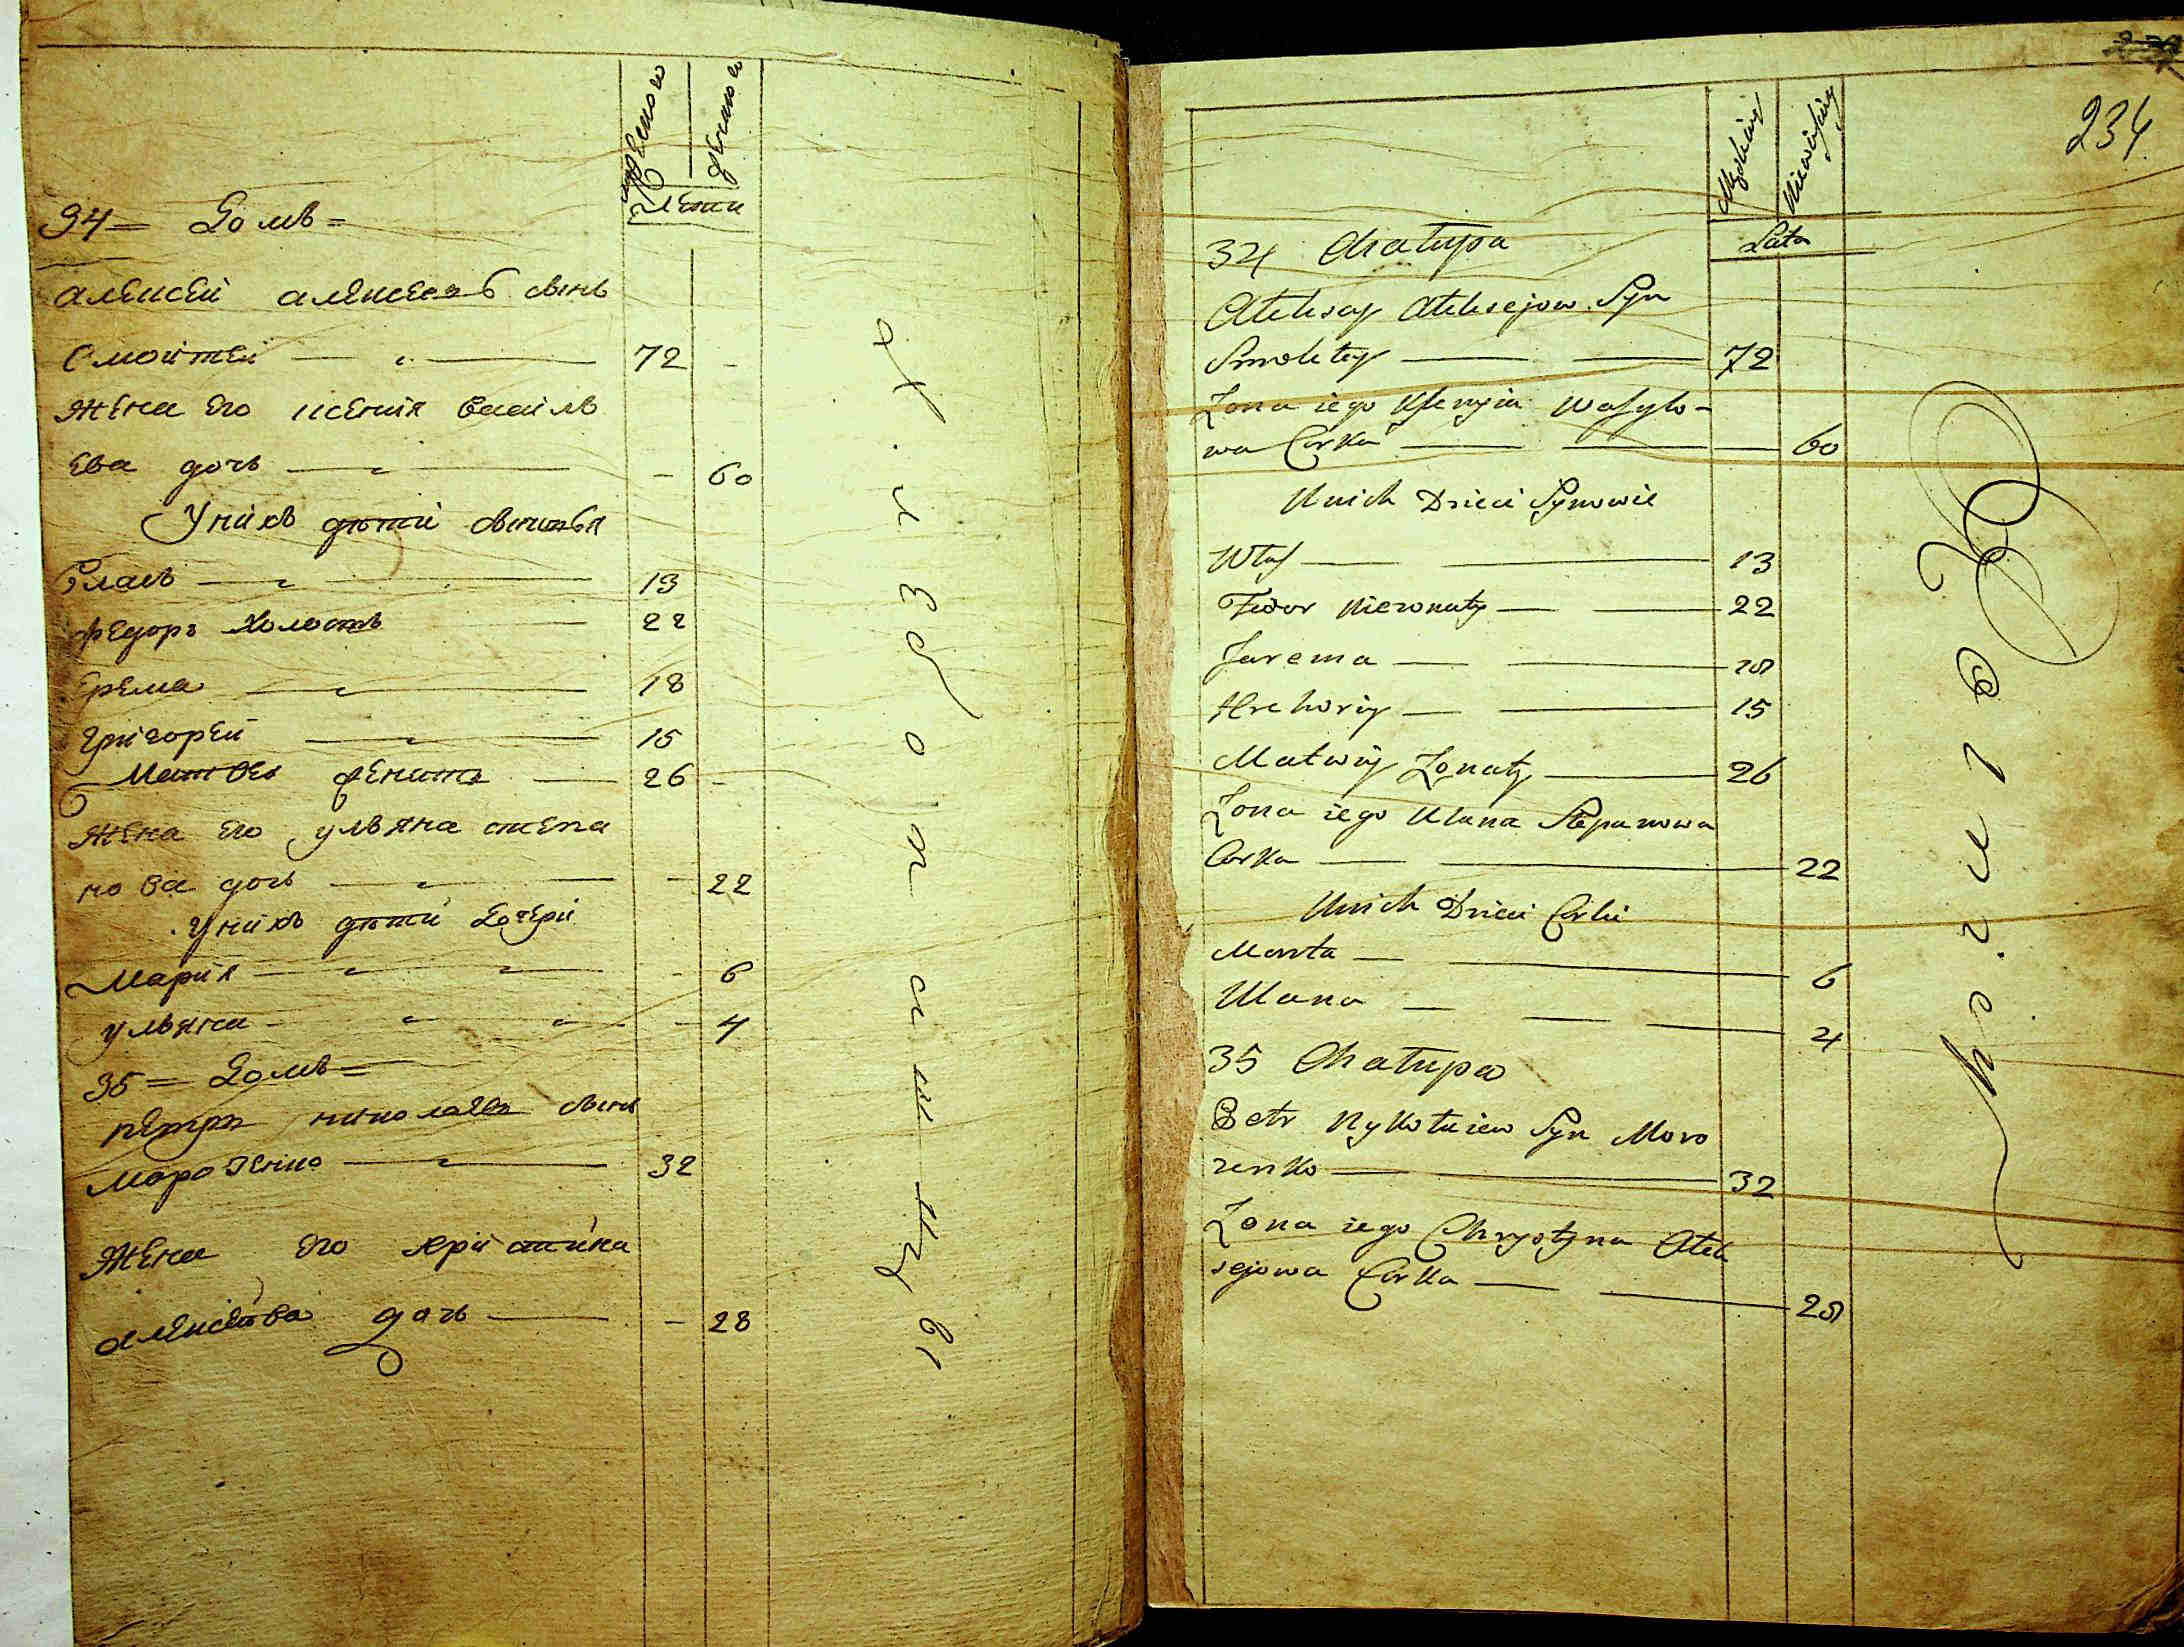 мужеска
женска
лети
34 = Домъ =
алексей алексеевъ сынъ
Смоктей 72 -
жена его ксения василь
ева дочь - 60
У нихъ дети сыновья
Власъ 13
федоръ холостъ 22
Ерема 18
григорей 15
Матвей женатъ 26 -
жена его ульяна степа
нова дочь - 22
У нихъ дети дочери
Мария - 6
ульяна - 4
35 = Домъ =
петръ николаевъ сынъ
морозенко 32
жена его христина
алексеева дочь - 28
234
Męzkiey
Niewiesciey
Lata
34 Chałupa
Ałeksey Ałeksejow Syn
Smoktey 72
Zona iego Xsenyia Wasylo-
wa Corka 60
U nich Dzieci Synowie
Własy 13
Fedor Niezonaty 22
Jarema 18
Hrehoriy 15
Matwiy Zonaty 26
Zona iego Ulana Stepanowa
Corka 22
U nich Dzieci Corki
Marta 6
Ulana 4
35 Chałupa
Petr Nykołaiew Syn Moro
zenko 32
Zona iego Chrystyna Ałek
sejowa Corka 28